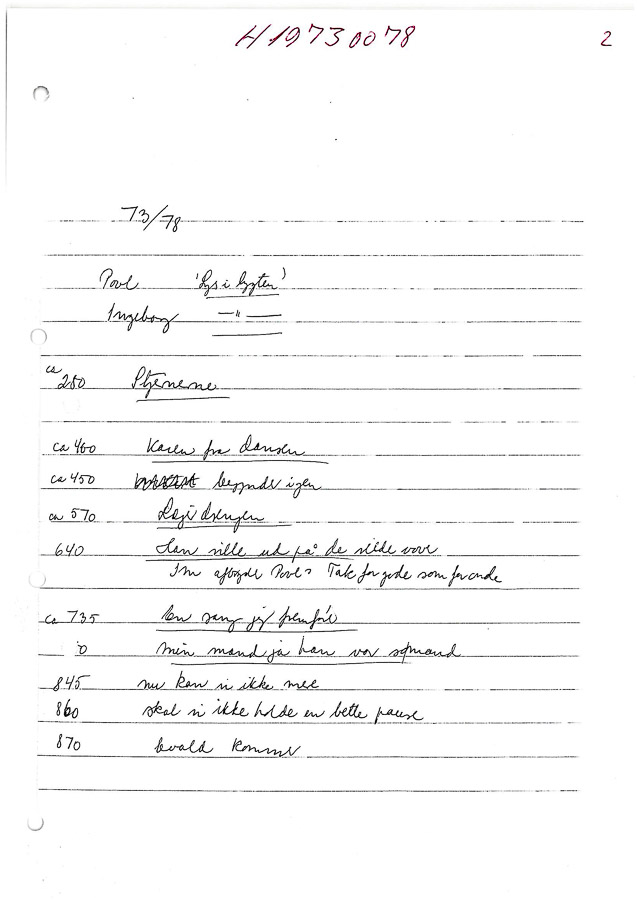 H19730078 2
73/78
Povl 'Lys i lygten'
Ingeborg — " —
ca 280 Stjernerne
ca 460 Karen fra dansen
ca 450 begynder igen
ca 570 Løjedrengen
640 Han ville ud på de vilde vove
I'm afbryde Povl? Tak for gode som for onde
ca 735 En sang jeg fremføre
0 min mand ja han var sømand
845 nu kan vi ikke mere
860 skal vi ikke holde en bette pause
870 Evald kommer